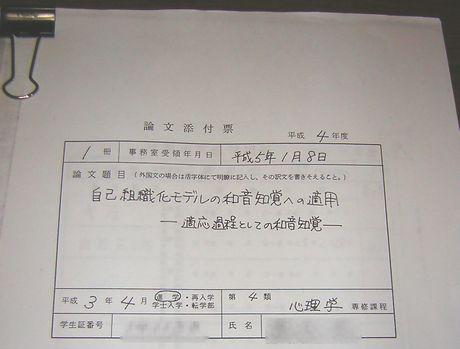 論文添付票
平成 4 年度
1 冊 事務室受領年月日 平成5年1月8日
論文題目 (外国文の場合は活字体にて明瞭に記入し、その訳文を書きそえること。)
自己組織化モデルの和音知覚への適用
― 適応過程としての和音知覚 ―
平成 3 年 4 月 進学・再入学 第 4 類 心理学 専修課程
学士入学・転学部
学生証番号 氏名